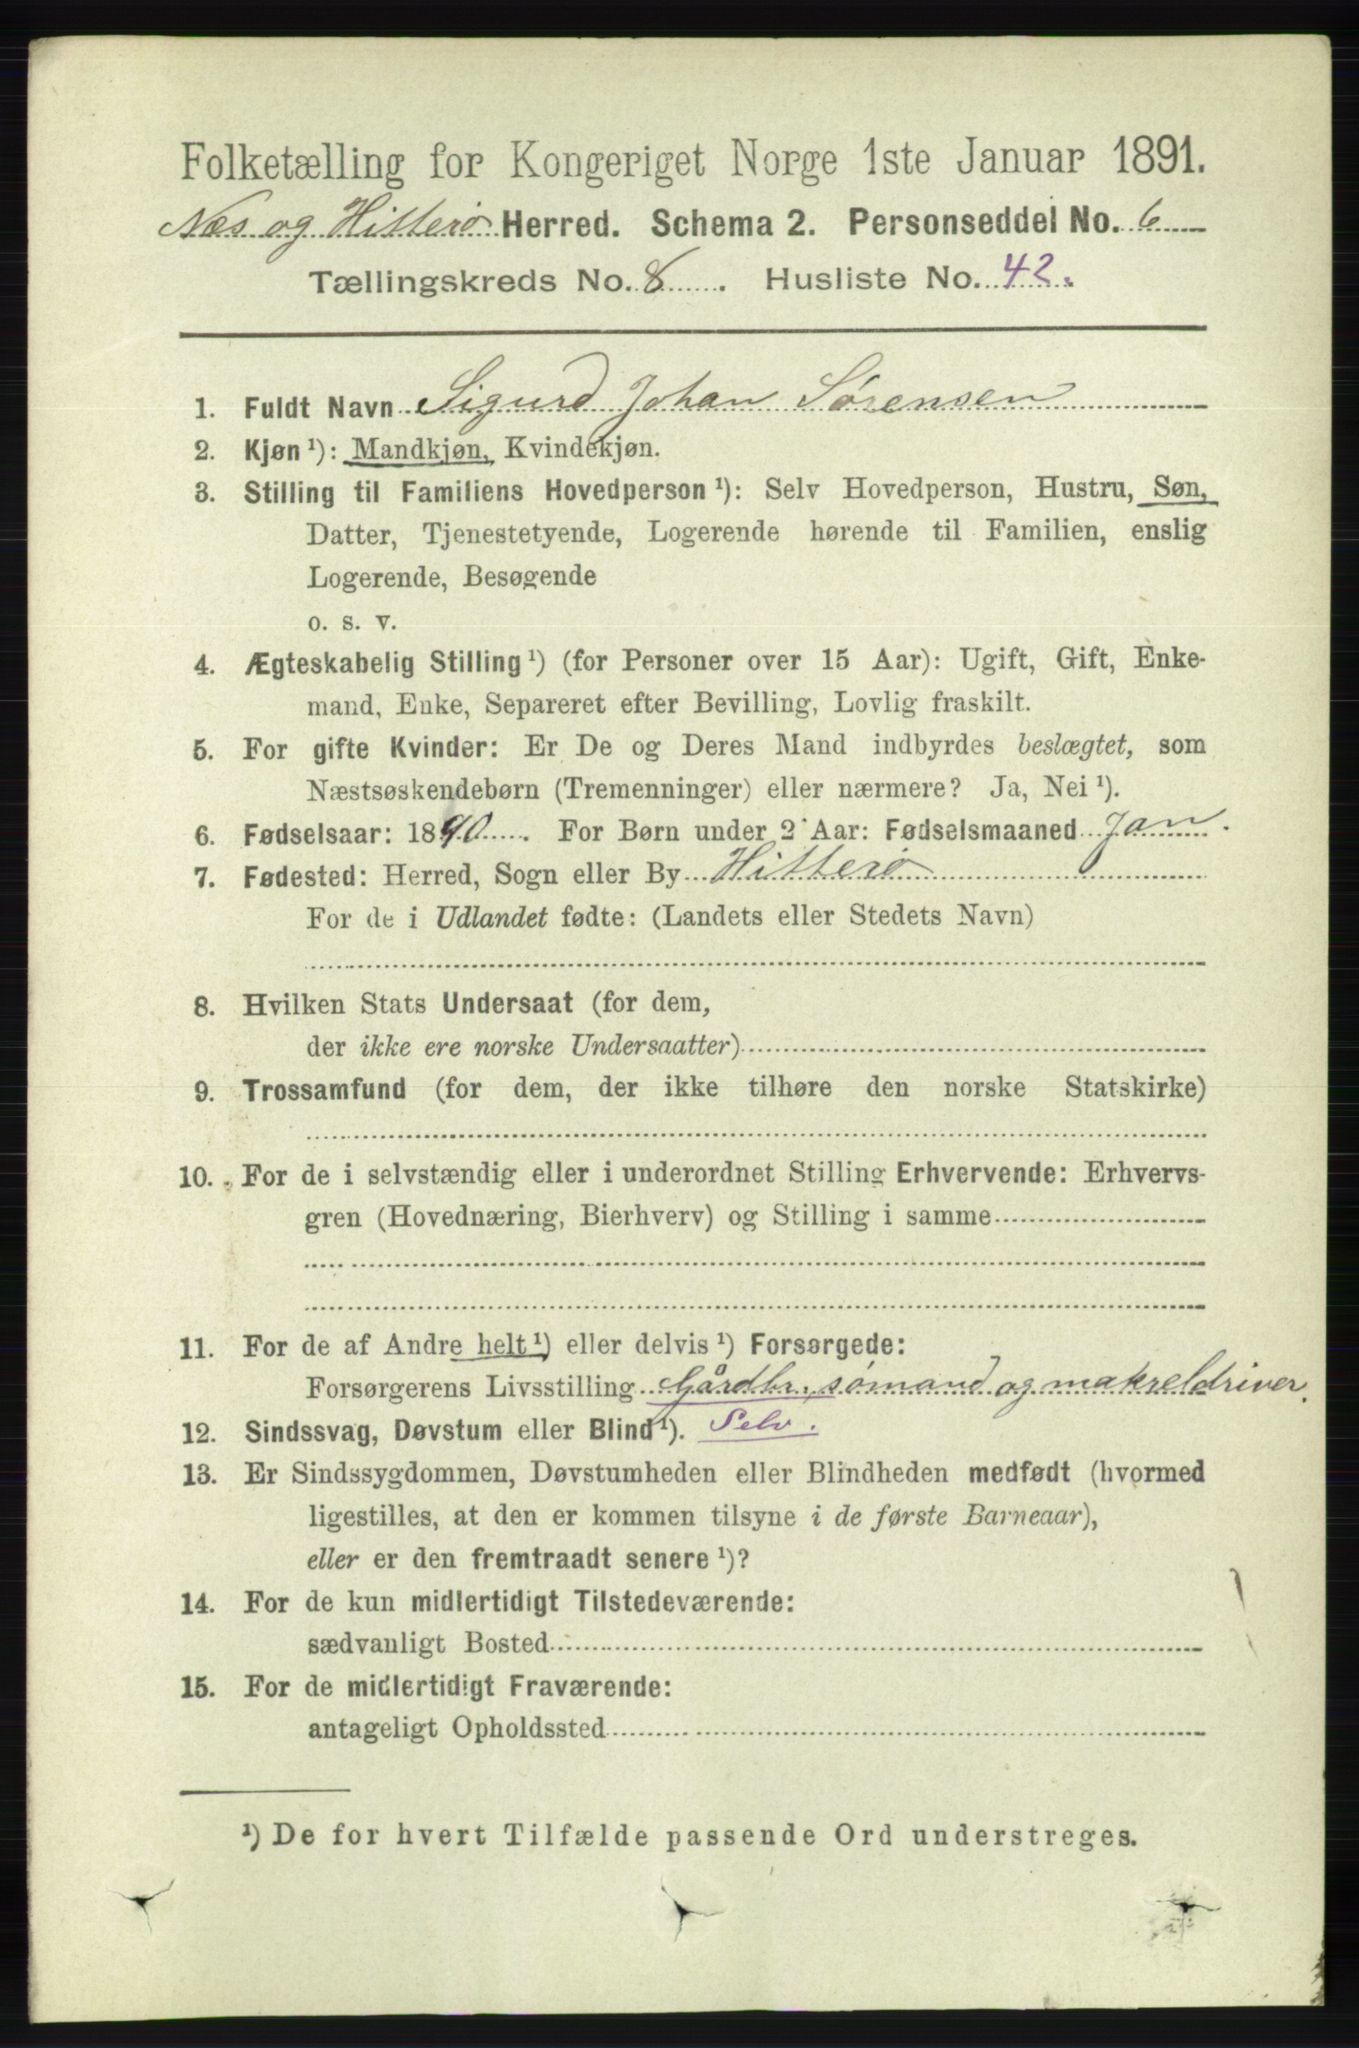 Folketælling for Kongeriget Norge 1ste Januar 1891.
Næs og Hitterø Herred. Schema 2. Personseddel No. 6
Tællingskreds No. 8. Husliste No. 42.
1. Fuldt Navn Sigurd Johan Sørensen
2. Kjøn ¹): Mandkjøn, Kvindekjøn.
3. Stilling til Familiens Hovedperson ¹): Selv Hovedperson, Hustru, Søn,
Datter, Tjenestetyende, Logerende hørende til Familien, enslig
Logerende, Besøgende
o. s. v.
4. Ægteskabelig Stilling ¹) (for Personer over 15 Aar): Ugift, Gift, Enke-
mand, Enke, Separeret efter Bevilling, Lovlig fraskilt.
5. For gifte Kvinder: Er De og Deres Mand indbyrdes beslægtet, som
Næstsøskendebørn (Tremenninger) eller nærmere? Ja, Nei ¹).
6. Fødselsaar: 1890. For Børn under 2 Aar: Fødselsmaaned Jan.
7. Fødested: Herred, Sogn eller By Hitterø
For de i Udlandet fødte: (Landets eller Stedets Navn)
8. Hvilken Stats Undersaat (for dem,
der ikke ere norske Undersaatter)
9. Trossamfund (for dem, der ikke tilhøre den norske Statskirke)
10. For de i selvstændig eller i underordnet Stilling Erhvervende: Erhvervs-
gren (Hovednæring, Bierhverv) og Stilling i samme
11. For de af Andre helt ¹) eller delvis ¹) Forsørgede:
Forsørgerens Livsstilling Gårdbr., sømand og makreldriver.
12. Sindssvag, Døvstum eller Blind ¹). Selv.
13. Er Sindssygdommen, Døvstumheden eller Blindheden medfødt (hvormed
ligestilles, at den er kommen tilsyne i de første Barneaar),
eller er den fremtraadt senere ¹)?
14. For de kun midlertidigt Tilstedeværende:
sædvanligt Bosted
15. For de midlertidigt Fraværende:
antageligt Opholdssted
¹) De for hvert Tilfælde passende Ord understreges.